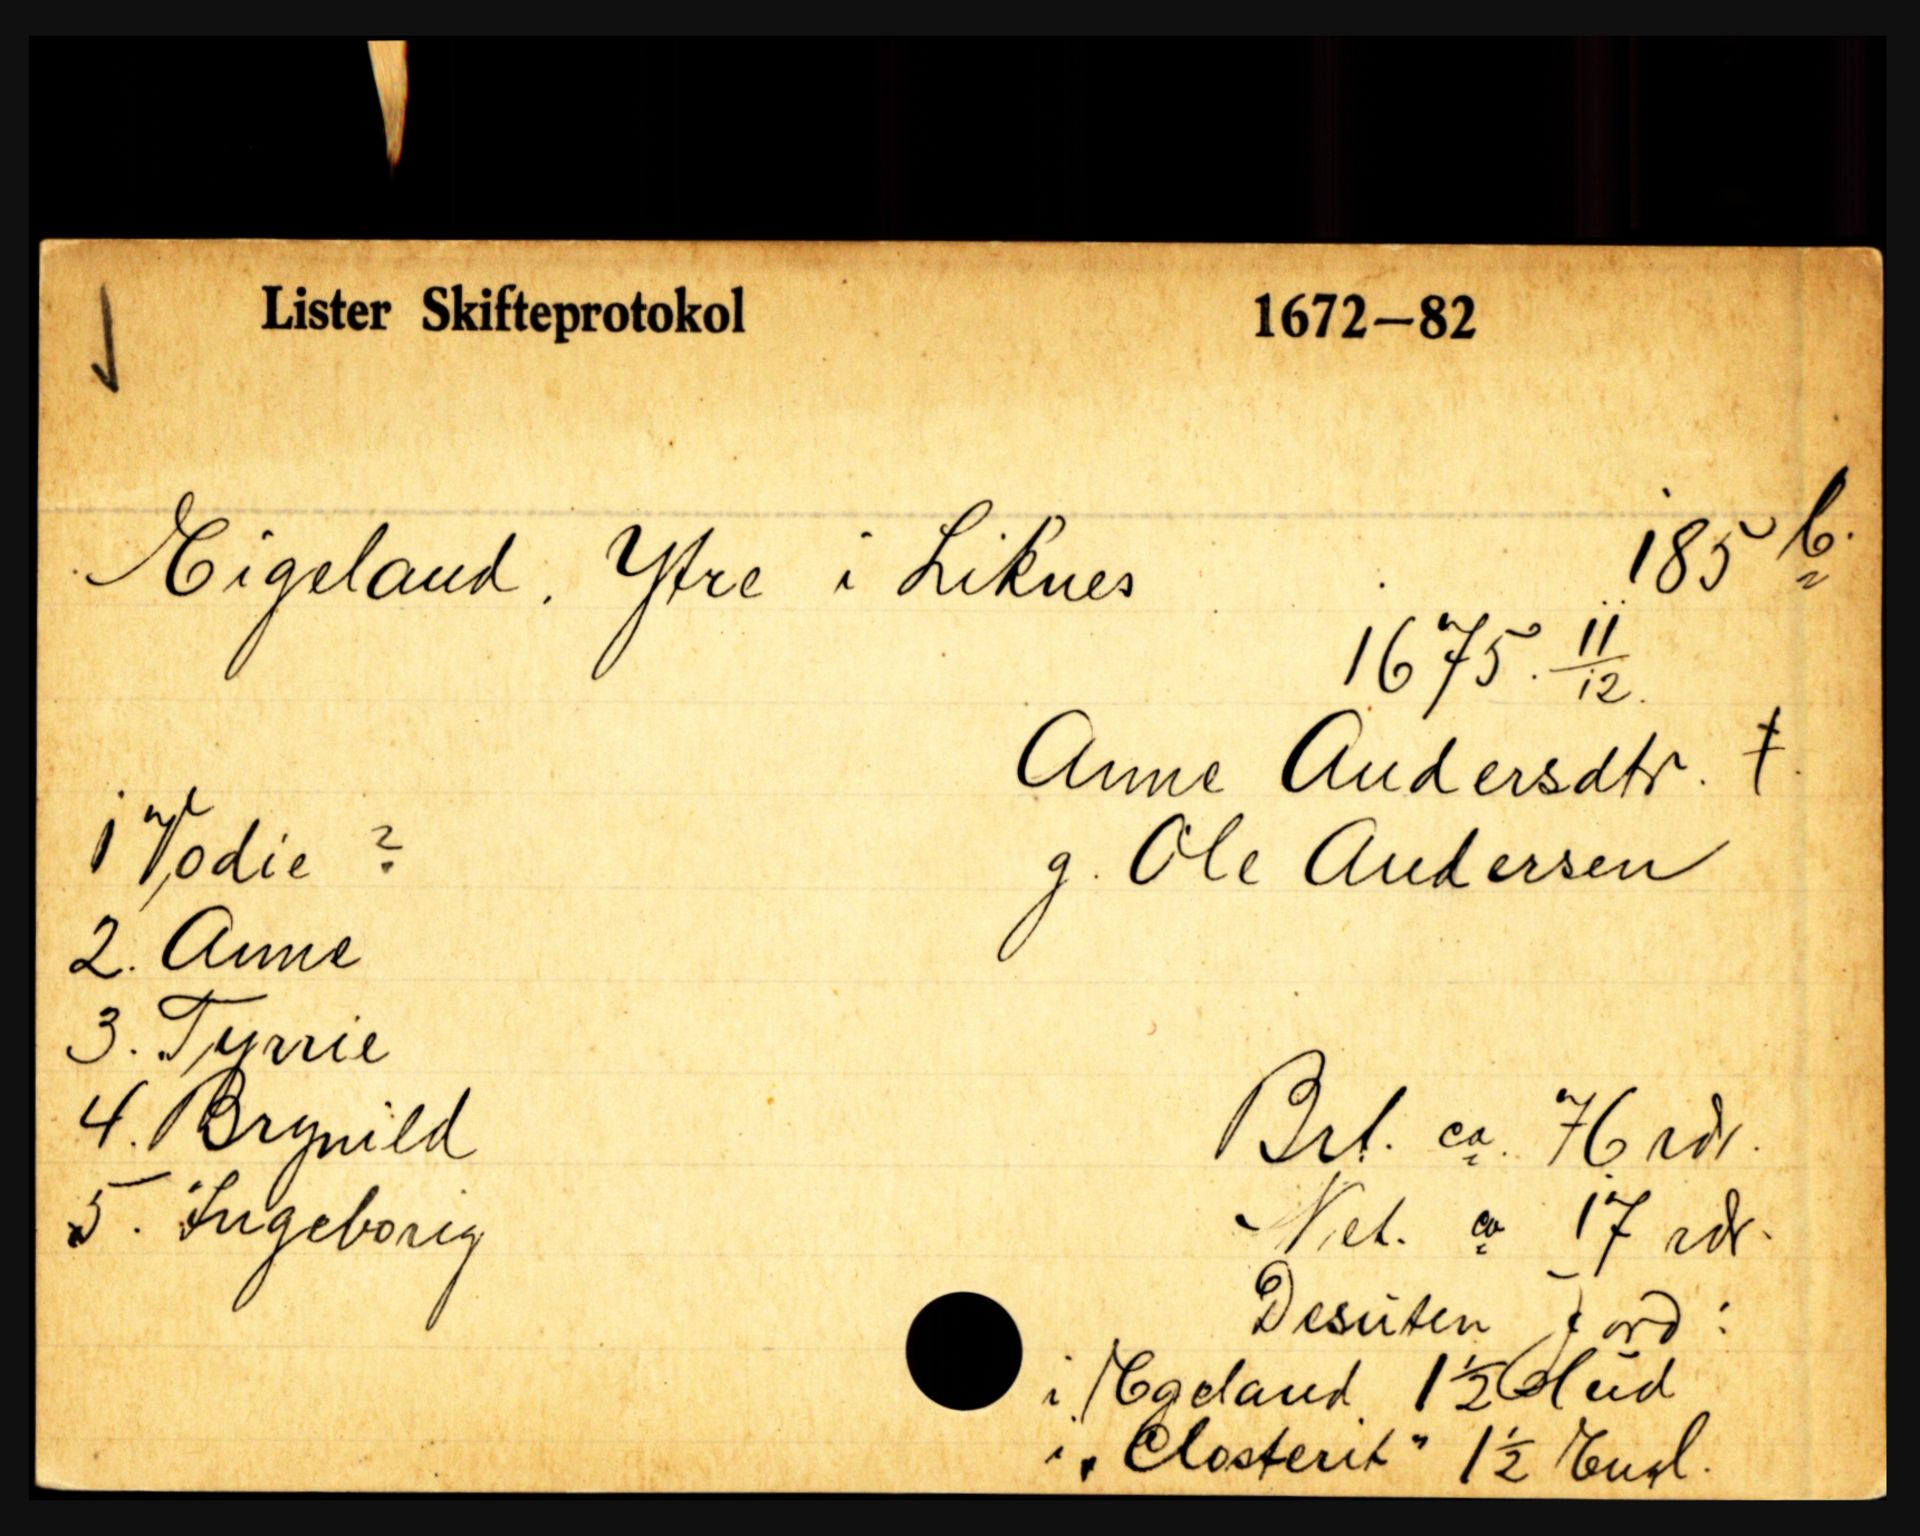 Lister Skifteprotokol 1672—82
Eigeland. Ytre i Liknes 185 b.
1675. 11/12.
Anne Andersdtr. †.
g. Ole Andersen
1 Todie ?
2. Anne
3. Tyrrie
4. Brynild
5. Ingeborig
Brt. ca. 76 rdr.
Net. ca 17 rdr.
Desuten Jord :
i Egeland 1½ Hud
i „Closterit" 1½ Engl.